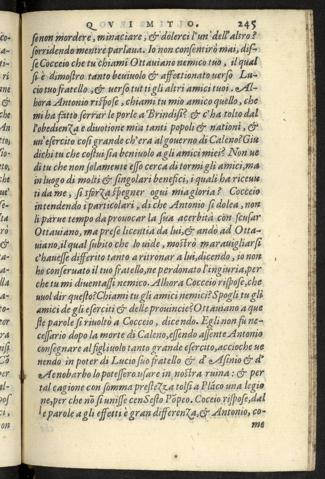 QVIEIMITIO. 245
senon mordere, minaciare, & dolerci l'un' dell'altro?
sorridendo mentre parlaua. Io non consentirò mai, dis-
se Cocceio che tu chiami Ottauiano nemico tuo, il qual
si è dimostro tanto beuiuolo & affettionato uerso Lu-
cio tuo fratello, & uerso tutti gli altri amici tuoi. Al-
hora Antonio rispose, chiami tu mio amico quello, che
mi ha fatto serrar le porle a Brindisi? & c'ha tolto dal
l'obedienza e diuotione mia tanti popoli & nationi, &
un'esercito cosi grande ch'era al gouerno di Caleno? Giu
dichi tu che costui sia beniuolo a gli amici miei? Non ue
di tu che non solamente esso cerca di tormi gli amici, ma
in luogo di molti & singolari benefici, i quali ha riceuu
ti da me, si sforza spegner ogui mia gloria? Cocceio
intendendo i particolari, di che Antonio si dolea, non
li parue tempo da prouocar la sua acerbità con scusar
Ottauiano, ma prese licentia da lui, & andò ad Otta-
uiano, il qual subito che lo uide, mostrò marauigliarsi
c'hauesse differito tanto a ritornar a lui, dicendo, io non
ho conseruato il tuo fratello, ne perdonato l'ingiuria, per
che tu mi diuentassi nemico. Alhora Cocceio rispose, che
uuol dir questo? Chiami tu gli amici nemici? Spogli tu gli
amici de gli eserciti & dello prouincie? Ottauiano a que
ste parole si riuoltò a Cocceio, dicendo. Egli non fu ne-
cessario dopo la morte di Caleno, essendo assente Antonio
consegnare al figliuolo tanto grande esercito, accioche ue
nendo in poter di Lucio suo fratello & d'Asinio & d'
Aenobarbo lo potessero usare in nostra ruina: & per
tal cagione con somma prestezza tolsi a Plãco una legio
ne, per che nõ si unisse cen Sesto Põpeo. Cocceio rispose, dal
le parole a gli effetti è gran differenza, & Antonio, co-
me